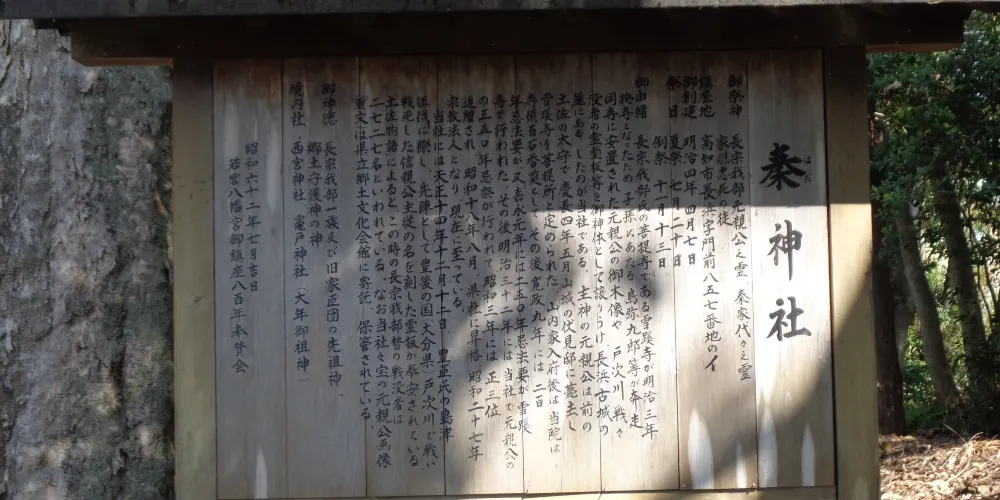 秦神社
はだ
御祭神 長宗我部元親公之霊 秦家代々之霊
家 忠死の徒
鎮座地 高知市長浜字門前八五七番地のイ
御創建 明治四年四月七日
祭日 夏祭 七月二十日
例祭 十一月十三日
御由緒 長宗我部氏の菩提寺である雪蹊寺が明治三年
廃寺となったため 子孫にあたる島弥九郎等が奔走
同寺に安置された元親公の御木像や 戸次川戦さ
没者の霊重板等を御神体として譲りうけ 長浜古城の
麓にある したのが当社である。主神の元親公は前の
土佐の太守で 慶長四年五月山城の伏見邸に薨去し
雪蹊寺を菩提所と定められた 山内家入府後は当院は、
寺領百石香奠とし その後寛政九年には二百
年忌法要が又嘉永元年には二五〇年忌法要が雪蹊
寺で行われた、その後明治三十一年には当社で元親公の
の三五〇年忌祭が行われて昭和三年には正三位
追贈され 昭和十八年八月 県社に昇格 昭和二十七年
宗教法人となり現在に至っている。
当社には天正十四年十二月十二日 豊臣氏の島津
征伐に際し、先陣として豊後の国大分県に戸次川で戦い
戦死した信親公主従の名を刻した霊板が奉安されている
土佐物語によるとこの時の長宗我部勢の戦没者は
二七二七名といわれている。なお当社々宝の元親公画像
(重文)は県立郷土文化会館に寄託、保管されている。
御神徳 長宗我部一族及び旧家臣団の先祖神、
郷土守護神の神
境内社 西宮神社 竈戸神社(大年御祖神)
昭和六十二年七月吉日
若宮八幡宮御鎮座八百年奉賛会